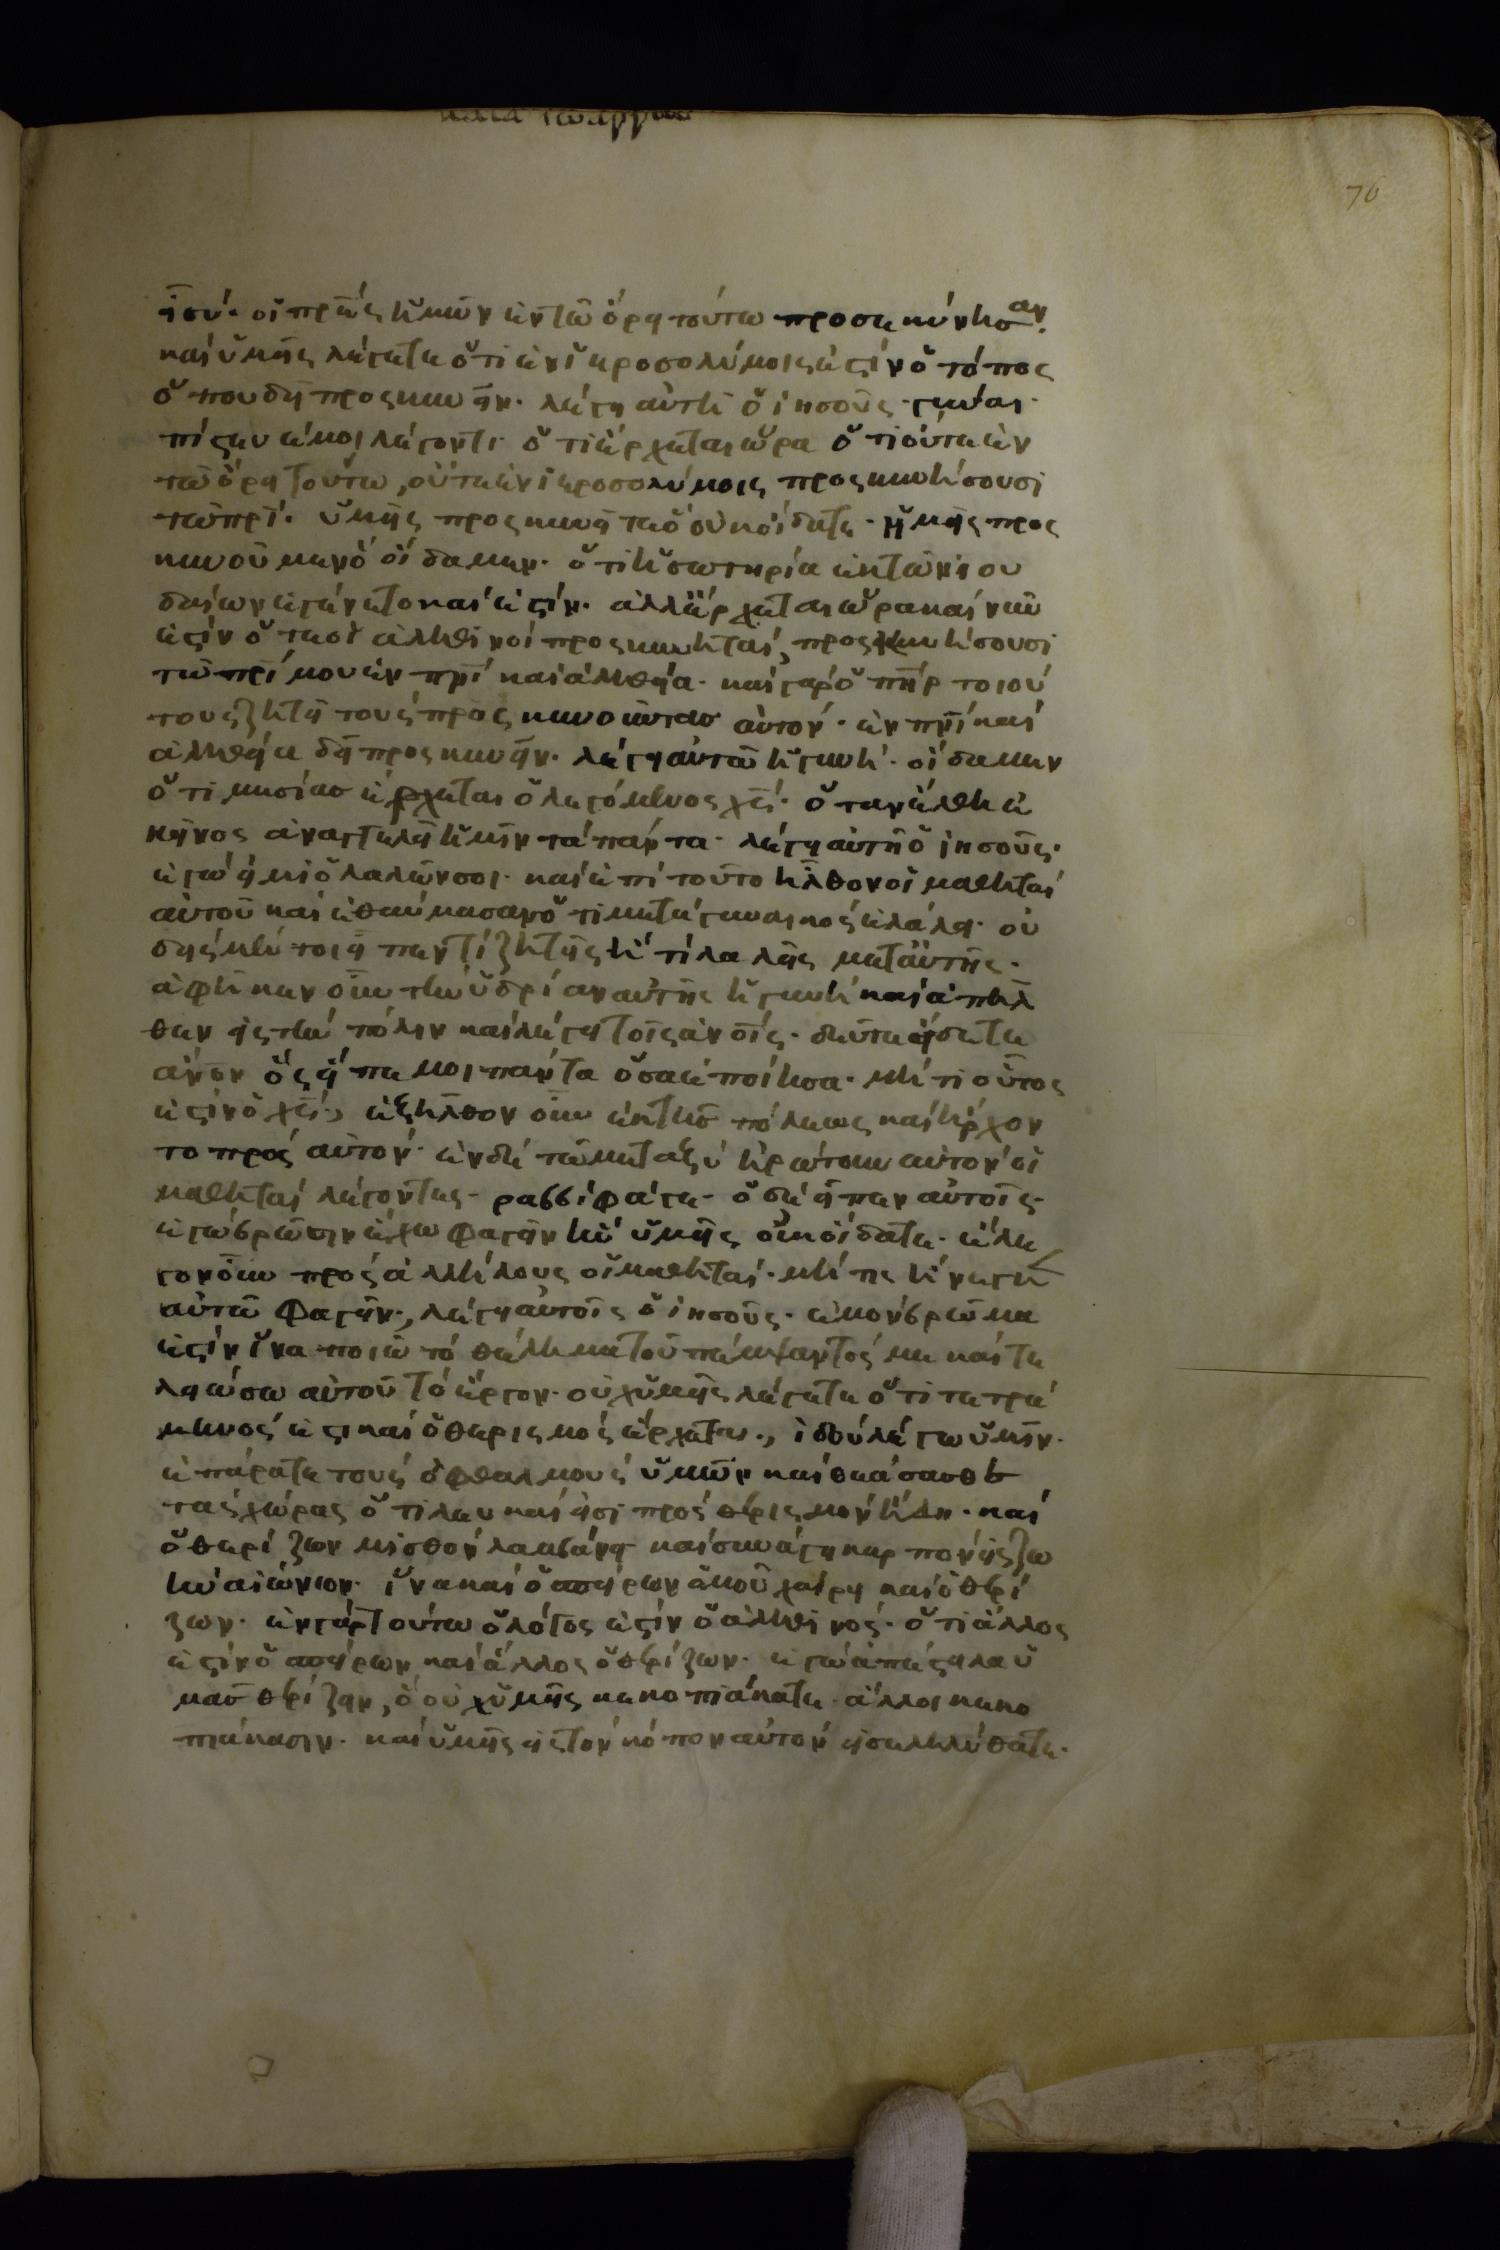 κατὰ ἰωάννην
70
εἶ σύ· οἱ πρ̅ε̅ς ἡμῶν ἐν τῶ ὄρει τούτω προσεκύνησαν·
καὶ ὑμεῖς λέγετε ὅτι ἐν ἱεροσολύμοις ἐστὶν ὁ τόπος
ὅπου δεῖ προσκυνεῖν· λέγει αὐτῆ ὁ ἰησοῦς· γύναι·
πίστευέ μοι λέγοντι· ὅτι ἔρχεται ὥρα ὅτι οὔτε ἐν
τῶ ὄρει τούτω, οὔτε ἐν ἱεροσολύμοις προσκυνήσουσι
τῶ πρ̅ι̅· ὑμεῖς προσκυνεῖτε ὃ οὐκ οἴδατε· ἡμεῖς προσ
κυνοῦμεν ὃ οἴδαμεν· ὅτι ἡ σωτηρία ἐκ τῶν ἰου
δαίων ἐγένετο καὶ ἐστίν· ἀλλ' ἔρχεται ὥρα καὶ νῦν
ἐστὶν ὅτε οἱ ἀληθινοὶ προσκυνηταί, προσκυνήσουσι
τῶ πρ̅ι̅ μου ἐν πν̅ι̅ καὶ ἀληθεία· καὶ γὰρ ὁ πη̅ρ̅ τοιού
τους ζητεῖ τοὺς προσκυνοῦντας αὐτόν· ἐν πν̅ι̅ καὶ
ἀληθεία δεῖ προσκυνεῖν· λέγει αὐτῶ ἡ γυνή· οἴδαμεν
ὅτι μεσίας ἔρχεται ὁ λεγόμενος χ̅ς̅· ὅταν ἔλθη ἐ
κεῖνος ἀναγγελεῖ ἡμῖν τὰ πάντα· λέγει αὐτῆ ὁ ἰησοῦς·
ἐγώ εἰμι ὁ λαλῶν σοι· καὶ ἐπὶ τοῦτο ἦλθον οἱ μαθηταὶ
αὐτοῦ καὶ ἐθαύμασαν ὅτι μετὰ γυναικὸς ἐλάλει· οὐ
δεὶς μέντοι εἶπεν τί ζητεῖς ἢ τί λαλεῖς μετ' αὐτῆς·
ἀφῆκεν οὖν τὴν ὑδρίαν αὐτῆς ἡ γυνὴ καὶ ἀπῆλ
θεν εἰς τὴν πόλιν καὶ λέγει τοῖς ἀν̅ο̅ι̅ς· δεῦτε ἴδετε
ἄν̅ο̅ν ὃς εἶπε μοι πάντα ὅσα ἐποίησα· μήτι οὗτος
ἐστὶν ὁ χ̅ς̅; ἐξῆλθον οὖν ἐκ τῆς πόλεως καὶ ἤρχον
το πρὸς αὐτόν· ἐν δὲ τῶ μεταξὺ ἠρώτουν αὐτὸν οἱ
μαθηταὶ λέγοντες· ραββὶ φάγε· ὁ δὲ εἶπεν αὐτοῖς·
ἐγὼ βρῶσιν ἔχω φαγεῖν ἣν ὑμεῖς οὐκ οἴδατε· ἔλε
γον οὖν πρὸς ἀλλήλους οἱ μαθηταί· μή τις ἤνεγκεν
αὐτῶ φαγεῖν; λέγει αὐτοῖς ὁ ἰησοῦς· ἐμὸν βρῶμα
ἐστὶν ἵνα ποιῶ τὸ θέλημα τοῦ πέμψαντός με καὶ τε
λειώσω αὐτοῦ τὸ ἔργον· οὐχ ὑμεῖς λέγετε ὅτι τετρά
μηνός ἐστι καὶ ὁ θερισμὸς ἔρχεται; ἰδοὺ λέγω ὑμῖν·
ἐπάρατε τοὺς ὀφθαλμοὺς ὑμῶν καὶ θεάσασθε
τὰς χώρας ὅτι λευκαί εἰσι πρὸς θερισμὸν ἤδη· καὶ
ὁ θερίζων μισθὸν λαμβάνει καὶ συνάγει καρπὸν εἰς ζω
ὴν αἰώνιον· ἵνα καὶ ὁ σπείρων ὁμοῦ χαίρη καὶ ὁ θερί
ζων· ἐν γὰρ τούτω ὁ λόγος ἐστὶν ὁ ἀληθινός· ὅτι ἄλλος
ἐστὶν ὁ σπείρων καὶ ἄλλος ὁ θερίζων· ἐγὼ ἀπέστειλα ὑ
μᾶς θερίζειν, ὃ οὐχ ὑμεῖς κεκοπιάκατε· ἄλλοι κεκο
πιάκασιν· καὶ ὑμεῖς εἰς τὸν κόπον αὐτῶν εἰσεληλύθατε·